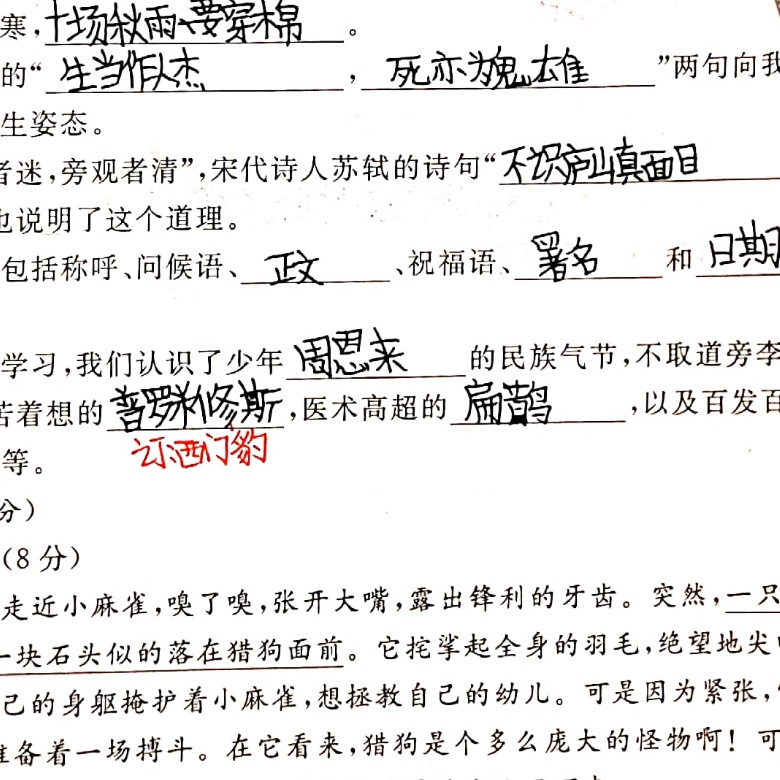 寒,十场秋雨要穿棉。
的“生当作人杰,死亦为鬼雄”两句向我
生姿态。
者迷,旁观者清”,宋代诗人苏轼的诗句“不识庐山真面目
也说明了这个道理。
包括称呼、问候语、正文、祝福语、署名和日期
学习,我们认识了少年周恩来的民族气节,不取道旁李
苦着想的普罗米修斯,医术高超的扁鹊,以及百发百
西门豹
等。
分)
(8分)
走近小麻雀,嗅了嗅,张开大嘴,露出锋利的牙齿。突然,一只
一块石头似的落在猎狗面前。它挓挲起全身的羽毛,绝望地尖
己的身躯掩护着小麻雀,想拯救自己的幼儿。可是因为紧张,
准备着一场搏斗。在它看来,猎狗是个多么庞大的怪物啊!可